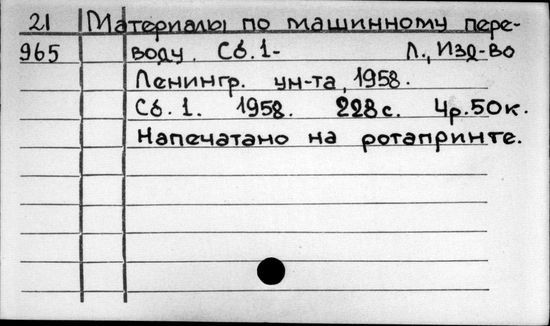 21 Материалы по машинному пере-
965 воду. Сб. 1- Л., Изд-во
Ленингр. ун-та, 1958.
Сб. 1. 1958. 228 с. 4р. 50к.
Напечатано на ротапринте.